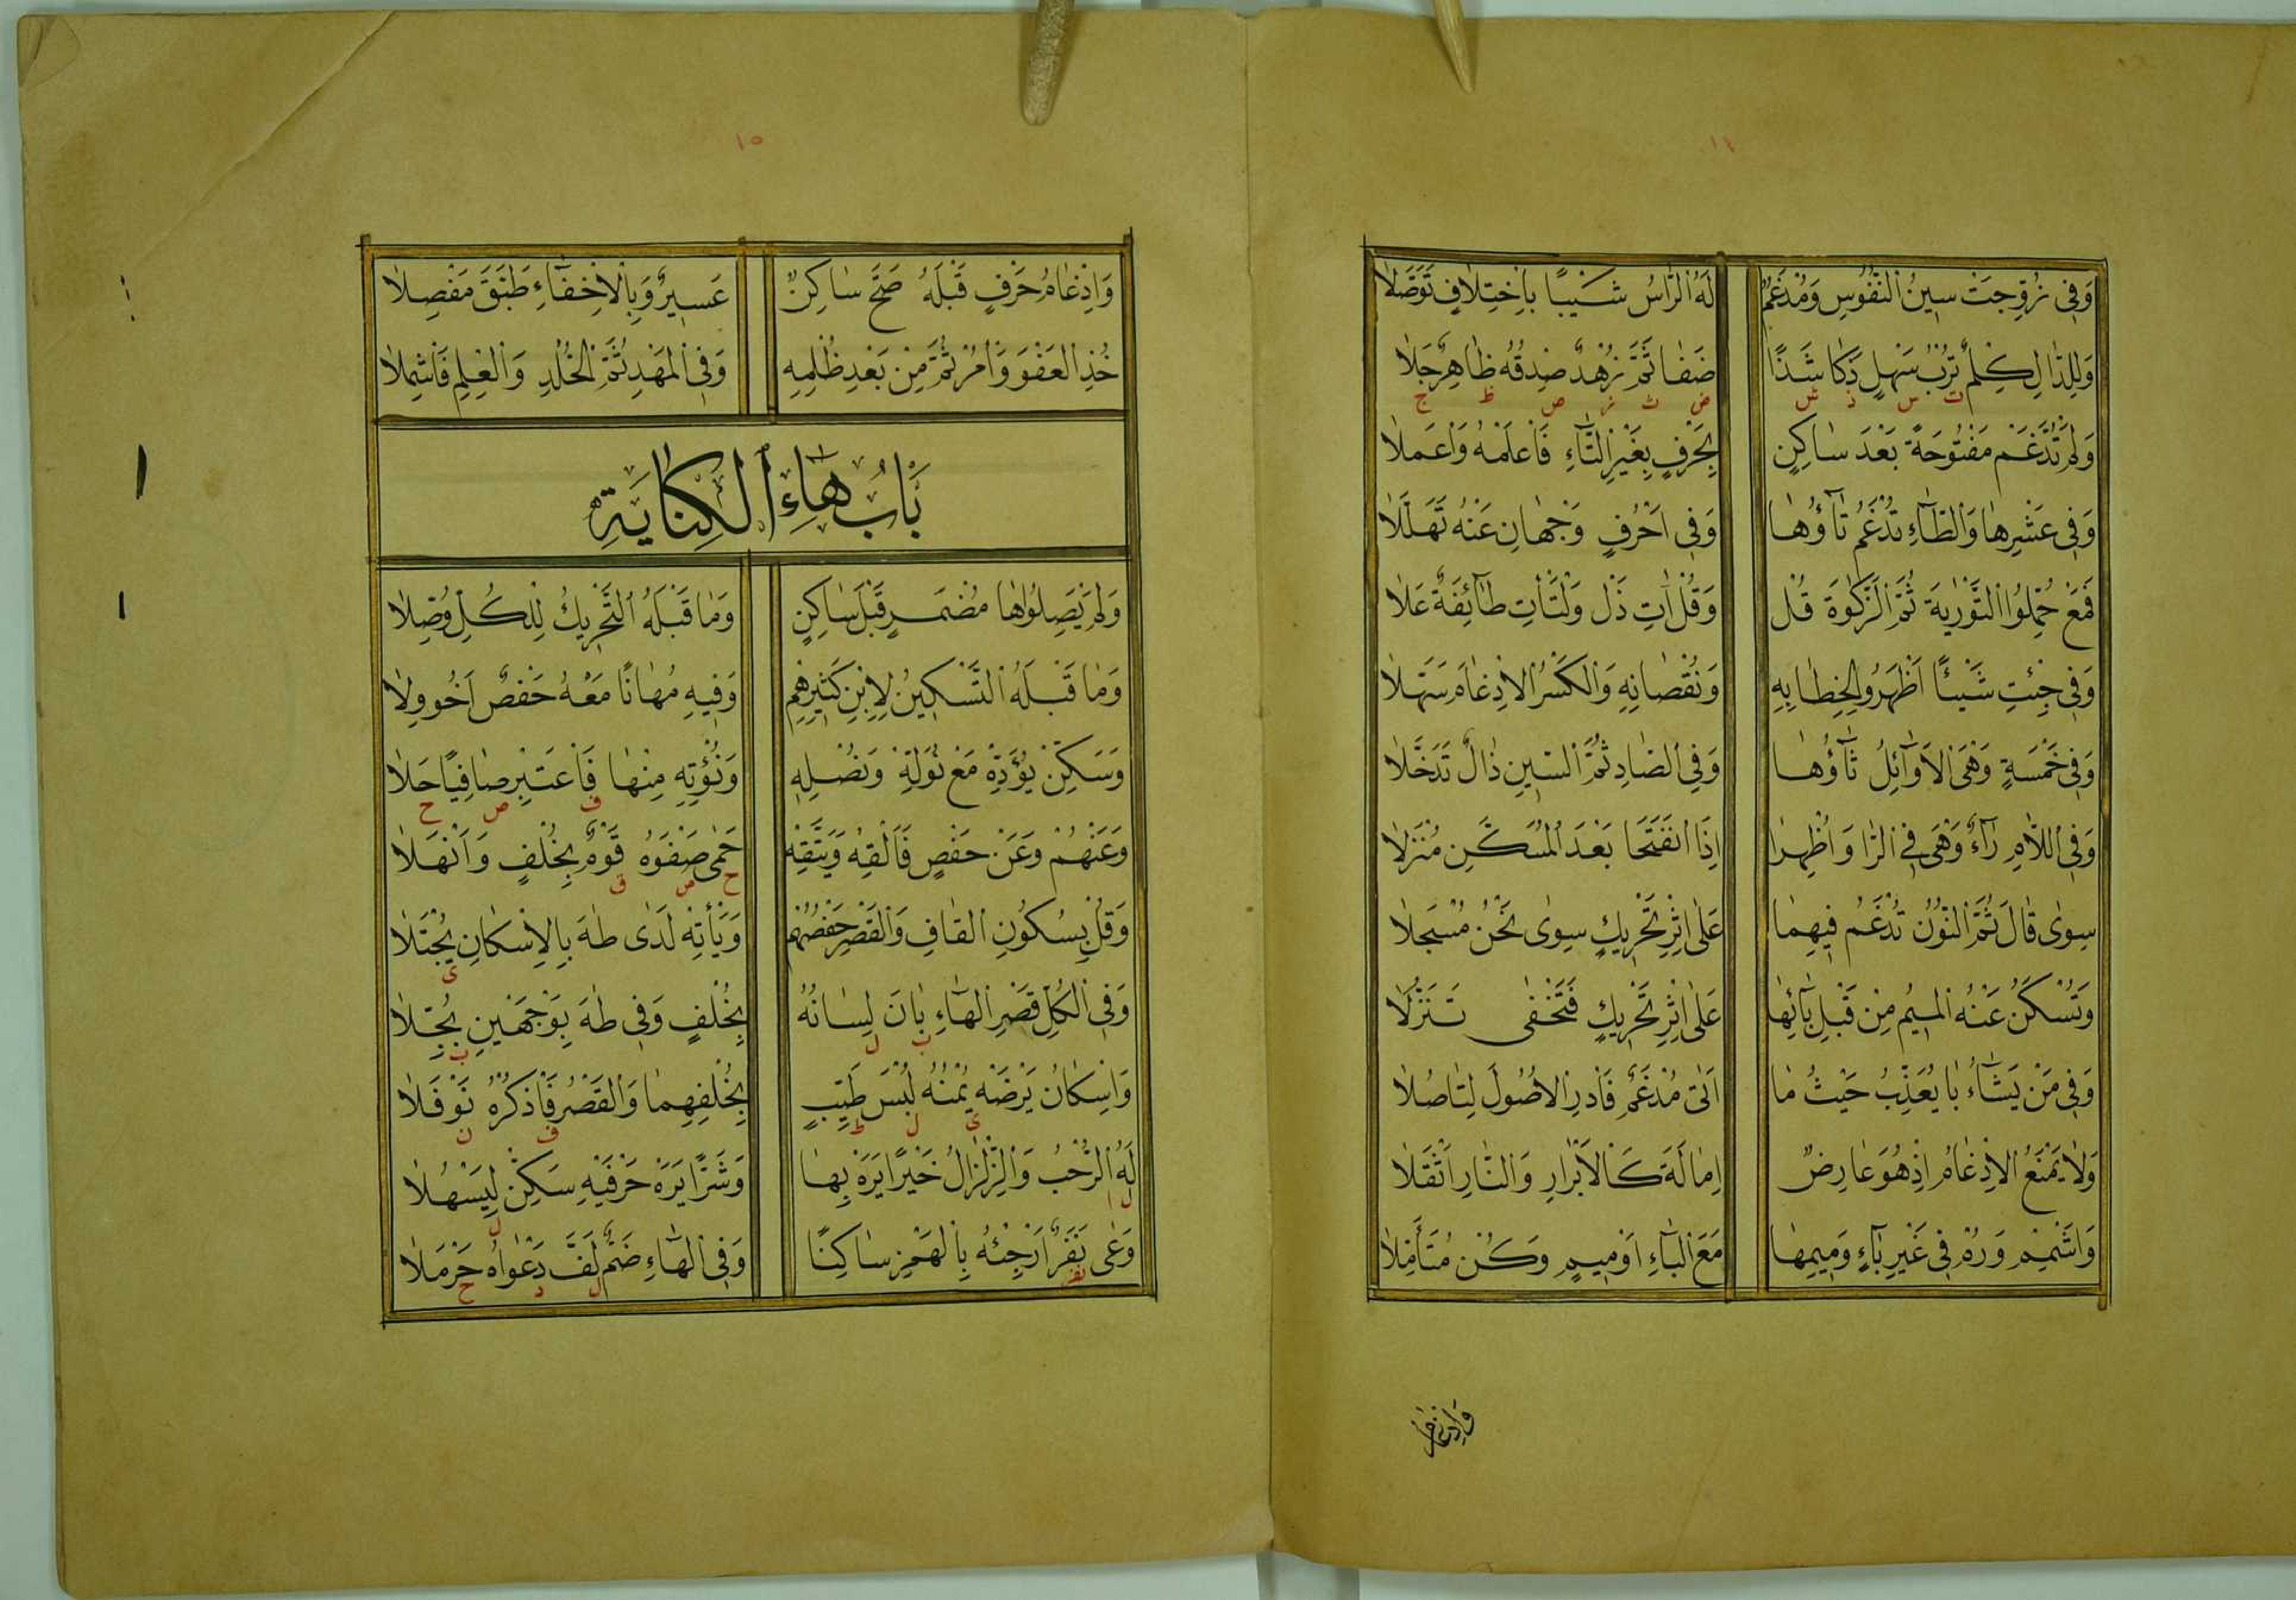 ١٤
وَفِي زُوِّجَتْ سِينُ النُّفُوسِ وَمُدْغَمٌ لَهُ الرَّاْسُ شَيْبًا بِاخْتِلَافٍ تَوَصَّلَا
وَلِلدَّالِ كِلْمٌ تُرْبُ سَهْلٍ ذَكَا شَذًا ضَفَا ثَمَّ زُهْدٌ صِدْقُهُ ظَاهِرٌ جَلَا
ت س ذ ش ض ث ز ص ظ ج
وَلَمْ تُدَّغَمْ مَفْتُوحَةً بَعْدَ سَاكِنٍ بِحَرْفٍ بِغَيْرِ التَّاءِ فَاعْلَمْهُ وَاعْمَلَا
وَفِي عَشْرِهَا وَالطَّاءِ تُدْغَمُ تَاؤُهَا وَفِي اَحْرُفٍ وَجْهَانِ عَنْهُ تَهَلَّلَا
فَمَعْ حُمِّلُوا التَّوْرٰيةَ ثُمَّ الزَّكٰوةَ قُلْ وَقُلْ اٰتِ ذَا لْ وَلْتَأْتِ طَائِفَةٌ عَلَا
وَفِي جِئْتِ شَيْئًا اَظْهَرُوا لِخِطَابِهِ وَنُقْصَانِهِ وَالْكَسْرُ الْاِدْغَامَ سَهَّلَا
وَفِي خَمْسَةٍ وَهْيَ الْاَوَائِلُ ثَاؤُهَا وَفِي الصَّادِ ثُمَّ السِّينِ ذَالٌ تَدَخَّلَا
وَفِي اللَّامِ رَاءٌ وَهْيَ فِي الرَّا وَاُظْهِرَا اِذَا انْفَتَحَا بَعْدَ الْمُسَكَّنِ مُنْزَلَا
سِوٰى قَالَ ثُمَّ النُّونُ تُدْغَمُ فِيهِمَا عَلٰى اِثْرِ تَحْرِيكٍ سِوٰى نَحْنُ مُسْجَلَا
وَتُسْكَنُ عَنْهُ الْمِيمُ مِنْ قَبْلِ بَائِهَا عَلٰى اِثْرِ تَحْرِيكٍ فَتَخْفٰى تَنَزُّلَا
وَفِي مَنْ يَشَاءُ بَا يُعَذِّبُ حَيْثُ مَا اَتٰى مُدْغَمٌ فَادْرِ الْاُصُولَ لِتَاصُلَا
وَلَا يَمْنَعُ الْاِدْغَامُ اِذْ هُوَ عَارِضٌ اِمَالَةَ كَالْاَبْرَارِ وَالنَّارِ اَثْقَلَا
وَاَشْمِمْ وَرُمْ فِي غَيْرِ بَاءٍ وَمِيمِهَا مَعَ الْبَاءِ اَوْ مِيمٍ وَكُنْ مُتَأَمِّلَا
وَاِدْغَامُ
١٥
وَاِدْغَامُ حَرْفٍ قَبْلَهُ صَحَّ سَاكِنٌ عَسِيرٌ وَبِالْاِخْفَاءِ طَبَّقَ مَفْصِلَا
خُذِ الْعَفْوَ وَأْمُرْ ثُمَّ مِنْ بَعْدِ ظُلْمِهِ وَفِي الْمَهْدِ ثُمَّ الْخُلْدِ وَالْعِلْمِ فَاشْمِلَا
بَابُ هَاءِ الْكِنَايَةِ
وَلَمْ يَصِلُوا هَا مُضْمَرٍ قَبْلَ سَاكِنٍ وَمَا قَبْلَهُ التَّحْرِيكُ لِلْكُلِّ وُصِّلَا
وَمَا قَبْلَهُ التَّسْكِينُ لِابْنِ كَثِيرِهِمْ وَفِيهِ مُهَانًا مَعْهُ حَفْصٌ اَخُو وِلَا
وَسَكِّنْ يُؤَدِّهْ مَعْ نُوَلِّهْ وَنُصْلِهِ وَنُؤْتِهِ مِنْهَا فَاعْتَبِرْ صَافِيًا حَلَا
ف ص ح
وَعَنْهُمْ وَعَنْ حَفْصٍ فَاَلْقِهْ وَيَتَّقِهْ حَمٰى صَفْوَهُ قَوْمٌ بِخُلْفٍ وَاَنْهَلَا
ح ص ق
وَقُلْ بِسُكُونِ الْقَافِ وَالْقَصْرِ حَفْصُهُمْ وَيَأْتِهْ لَدٰى طٰهَ بِالْاِسْكَانِ يُجْتَلَا
ى
وَفِي الْكُلِّ قَصْرُ الْهَاءِ بَانَ لِسَانُهُ بِخُلْفٍ وَفِي طٰهَ بِوَجْهَيْنِ بُجِّلَا
ب ل ب
وَاِسْكَانُ يَرْضَهْ يُمْنُهُ لُبْسُ طَيِّبٍ بِخُلْفِهِمَا وَالْقَصْرُ فَاذْكُرْهُ نَوْفَلَا
ى ل ط ف ن
لَهُ الرُّحْبُ وَالزِّلْزَالُ خَيْرًا يَرَهْ بِهَا وَشَرًّا يَرَهْ حَرْفَيْهِ سَكِّنْ لِيَسْهُلَا
ل ا ل
وَعٰى نَفَرٌ اَرْجِئْهُ بِالْهَمْزِ سَاكِنًا وَفِي الْهَاءِ ضَمٌّ لَفَّ دَعْوَاهُ حَرْمَلَا
نفر ل د ح